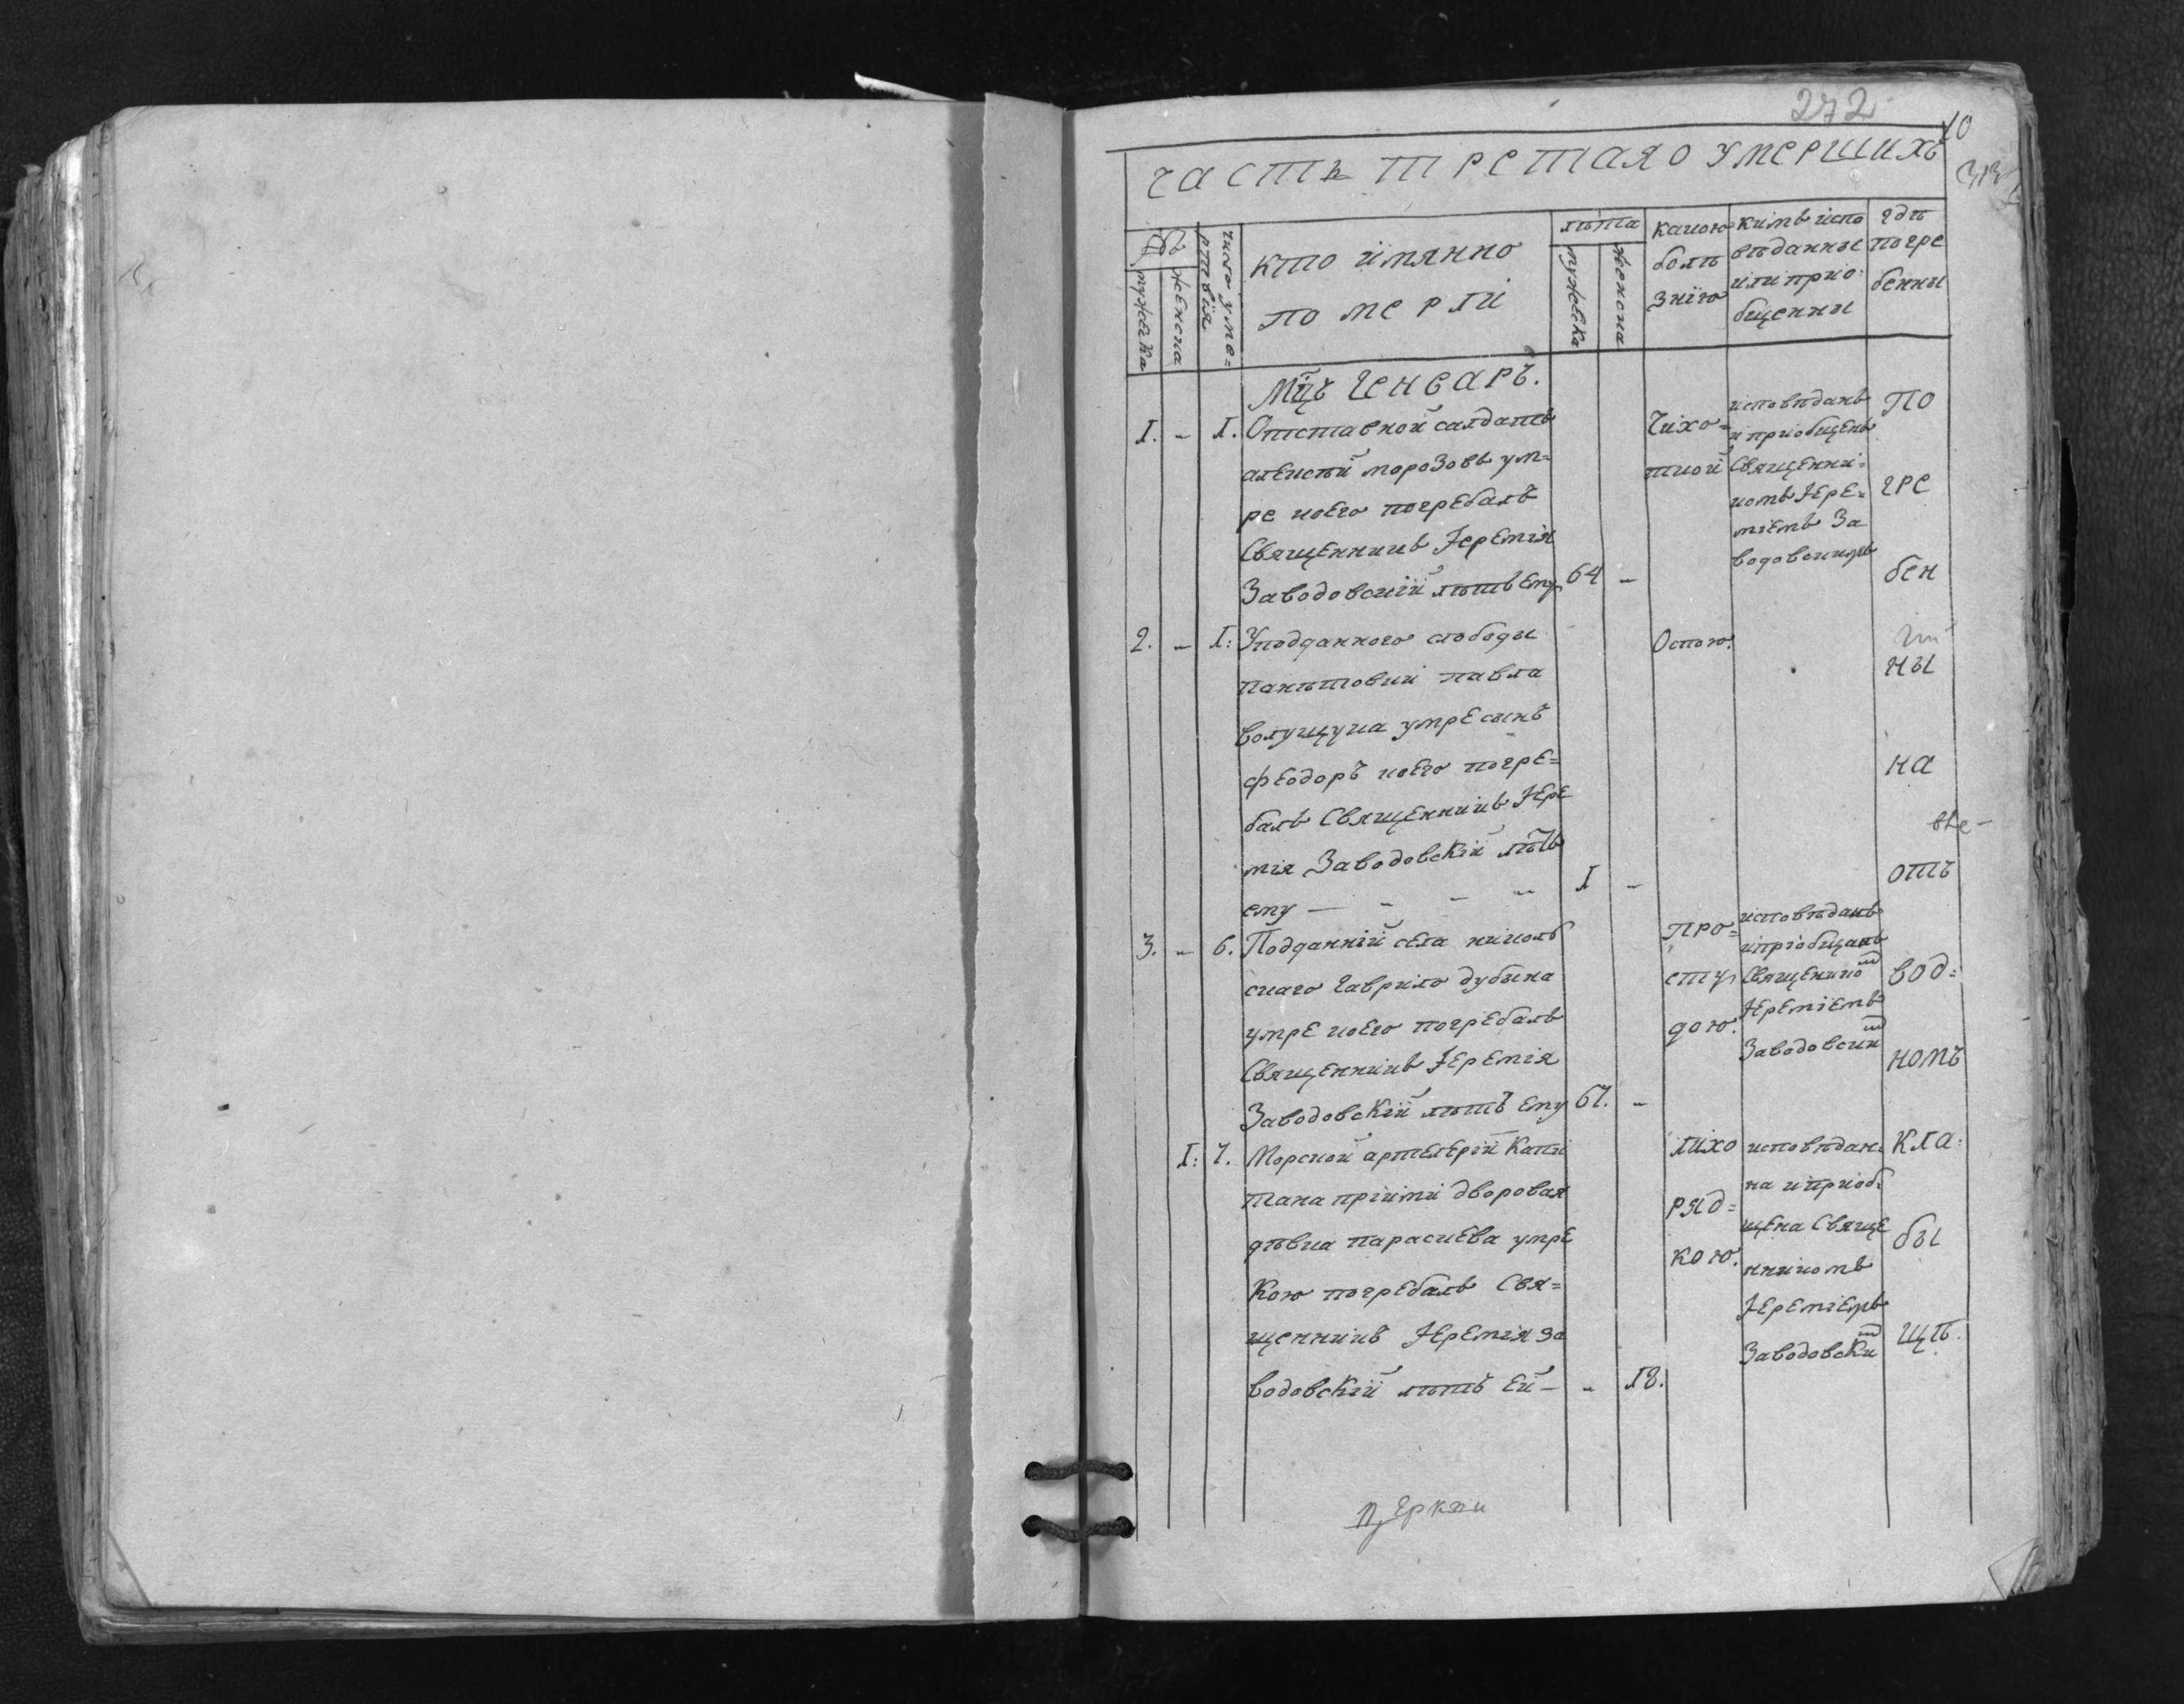 272
10
часть третая о умершихъ
№
мужеска
женска
число уме=
ртвїя
кто имянно
померли
лѣта
мужеска
женска
какою
болѣ
знїю
кимъ испо
вѣданны
или прио:
бщенны
гдѣ
погре
бенны
Мцъ Генваръ.
1. - 1. Отставной салдатъ
алексѣй морозовъ ум=
ре коего погребалъ
Священникъ Іеремїя
Заводовскїй лѣтъ ему 64 -
Чихо=
ткой
исповѣданъ
и приобщенъ
Священни=
комъ Іере=
мїемъ За
водовскимъ
2. - 1: Уподданного слободы
панѣтовки павла
волущука умре сынъ
феодоръ коего погре=
балъ Священникъ Іере
мїя Заводовскїй лѣтъ
ему — - - - 1 -
Оспою.
3. - 6. Подданнїй села николь
скаго Гаврило дубына
умре коего погребалъ
Священникъ Іеремїя
Заводовскїй лѣтъ ему 67. -
про=
сту
дою.
исповѣданъ
и прїобщанъ
Священико
Іеремїемъ
Заводовски
1: 7. Морской артелерїи Капи
тана прїими дворовая
дѣвка параскева умре
Кою погребалъ Свя=
щенникъ Іеремїя за
водовскїй лѣтъ ей — - 18.
лихо
ряд=
кою.
исповѣдан
на и приоб:
щена Свяще
нникомъ
Іеремїемъ
Заводовски
по
гре
бен
ны
на
отъ
вод=
номъ
кла:
бы
щѣ.
церкви